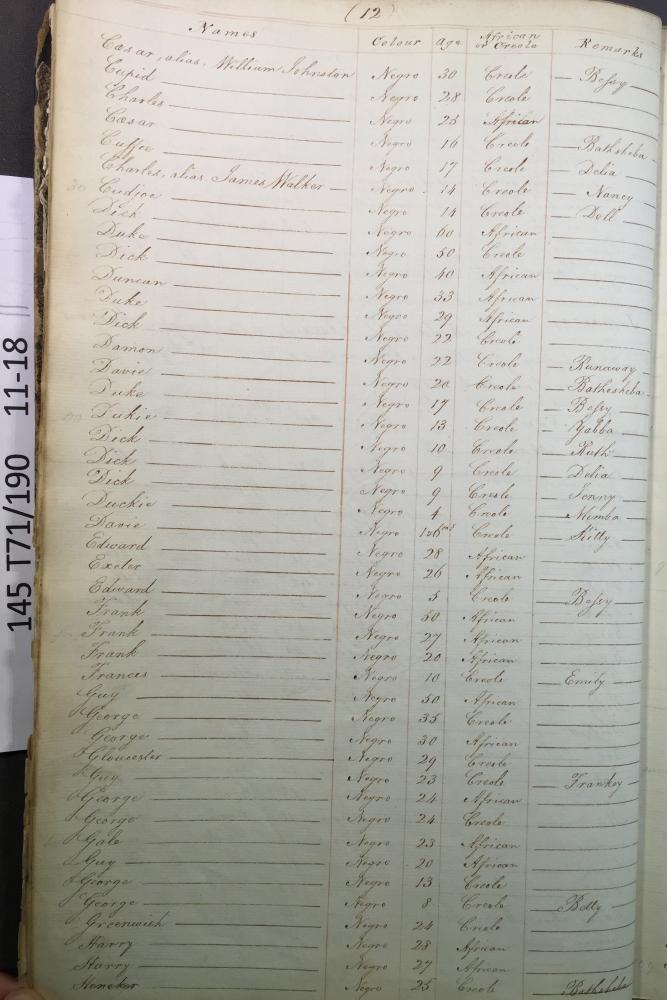 (12)
Names Colour Age African or Creole Remarks
Cæsar, alias, William Johnston Negro 30 Creole Bessy
Cupid Negro 28 Creole
Charles Negro 25 African
Cæsar Negro 16 Creole Bathsheba
Cuffee Negro 17 Creole Delia
Charles, alias James Walker Negro 14 Creole Nancy
30 Cudjoe Negro 14 Creole Doll
Dick Negro 60 African
Duke Negro 50 Creole
Dick Negro 40 African
Duncan Negro 33 African
Duke Negro 29 African
Dick Negro 22 Creole
Damon Negro 22 Creole Runaway
Davie Negro 20 Creole Bathesheba
Duke Negro 17 Creole Bessy
Dukie Negro 13 Creole Yabba
Dick Negro 10 Creole Ruth
Dick Negro 9 Creole Delia
Dick Negro 9 Creole Jenny
Duckie Negro 4 Creole Mimba
Davie Negro Creole Kitty
Edward Negro 28 African
Exeter Negro 26 African
Edward Negro 5 Creole Bessy
Frank Negro 50 African
Frank Negro 27 African
Frank Negro 20 African
Frances Negro 10 Creole Emily
Guy Negro 50 African
George Negro 35 Creole
George Negro 30 African
Gloucester Negro 29 Creole
Guy Negro 23 Creole Frankey
George Negro 24 African
George Negro 24 Creole
Gale Negro 23 African
Guy Negro 20 African
George Negro 13 Creole
George Negro 8 Creole Betty
Greenwich Negro 24 Creole
Harry Negro 28 African
Harry Negro 27 African
Heneker Negro 25 Creole Bathsheba
145 T71/190 11-18